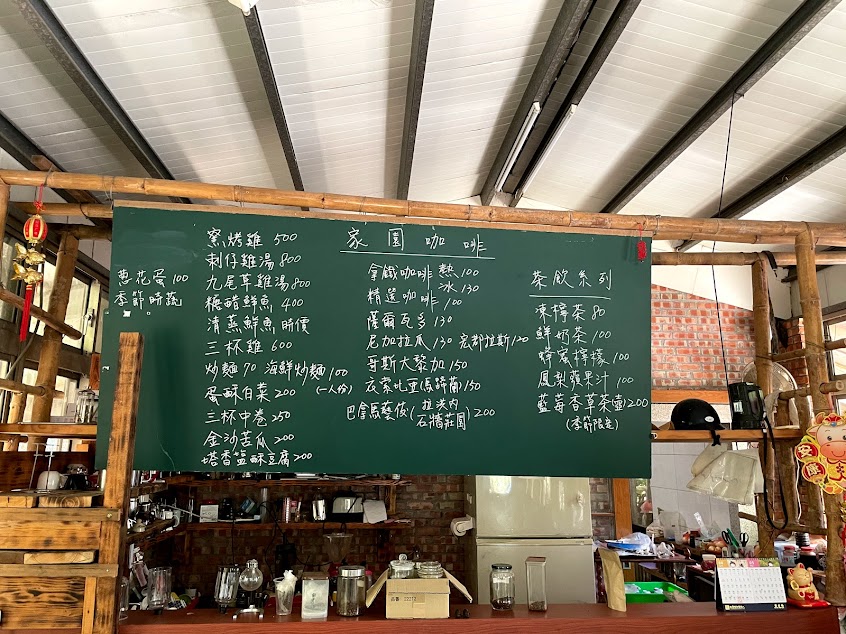 蔥花蛋100
季節時蔬
窯烤雞 500
刺仔雞湯800
九尾草雞湯800
糖醋鮮魚 400
清蒸鮮魚 時價
三杯雞 600
炒麵70 海鮮炒麵100
(一人份)
蛋酥白菜 200
三杯中卷250
金沙苦瓜200
塔香鹽酥豆腐200
家園咖啡
拿鐵咖啡 熱100
冰130
精選咖啡 100
薩爾瓦多 130
尼加拉瓜130 宏都拉斯120
哥斯大黎加150
衣索比亞(西達摩)150
巴拿馬藝伎(拉洪內石牆莊園)200
茶飲系列
凍檸茶80
鮮奶茶100
蜂蜜檸檬100
鳳梨蘋果汁 100
藍莓香草茶壺200
(季節限定)
安康